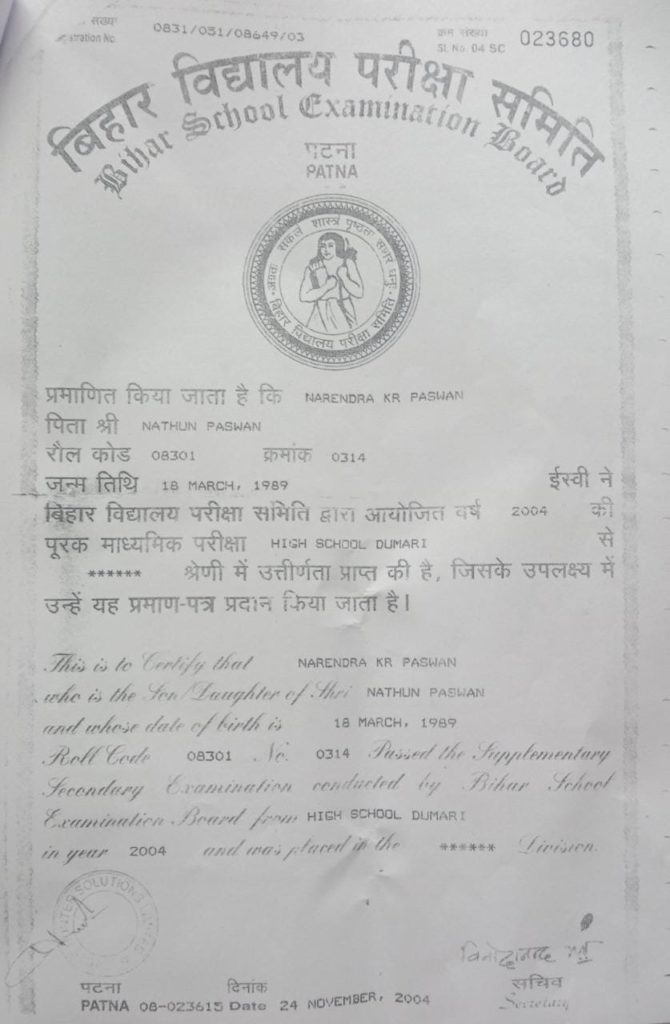 संख्या
stration No.
0831/051/08649/03
क्रम संख्या
Sl. No. 04 SC 023680
बिहार विद्यालय परीक्षा समिति
Bihar School Examination Board
पटना
PATNA
बिहार विद्यालय परीक्षा समिति
प्रमाणित किया जाता है कि NARENDRA KR PASWAN
पिता श्री NATHUN PASWAN
रौल कोड 08301 क्रमांक 0314
जन्म तिथि 18 MARCH, 1989 ईस्वी ने
बिहार विद्यालय परीक्षा समिति द्वारा आयोजित वर्ष 2004 की
पूरक माध्यमिक परीक्षा HIGH SCHOOL DUMARI से
****** श्रेणी में उत्तीर्णता प्राप्त की है, जिसके उपलक्ष्य में
उन्हें यह प्रमाण-पत्र प्रदान किया जाता है।
This is to Certify that NARENDRA KR PASWAN
who is the Son/Daughter of Shri NATHUN PASWAN
and whose date of birth is 18 MARCH, 1989
Roll Code 08301 No. 0314 Passed the Supplementary
Secondary Examination conducted by Bihar School
Examination Board from HIGH SCHOOL DUMARI
in year 2004 and was placed in the ****** Division.
SOLUTIONS
पटना दिनांक
PATNA 08-023615 Date 24 NOVEMBER, 2004
सचिव
Secretary